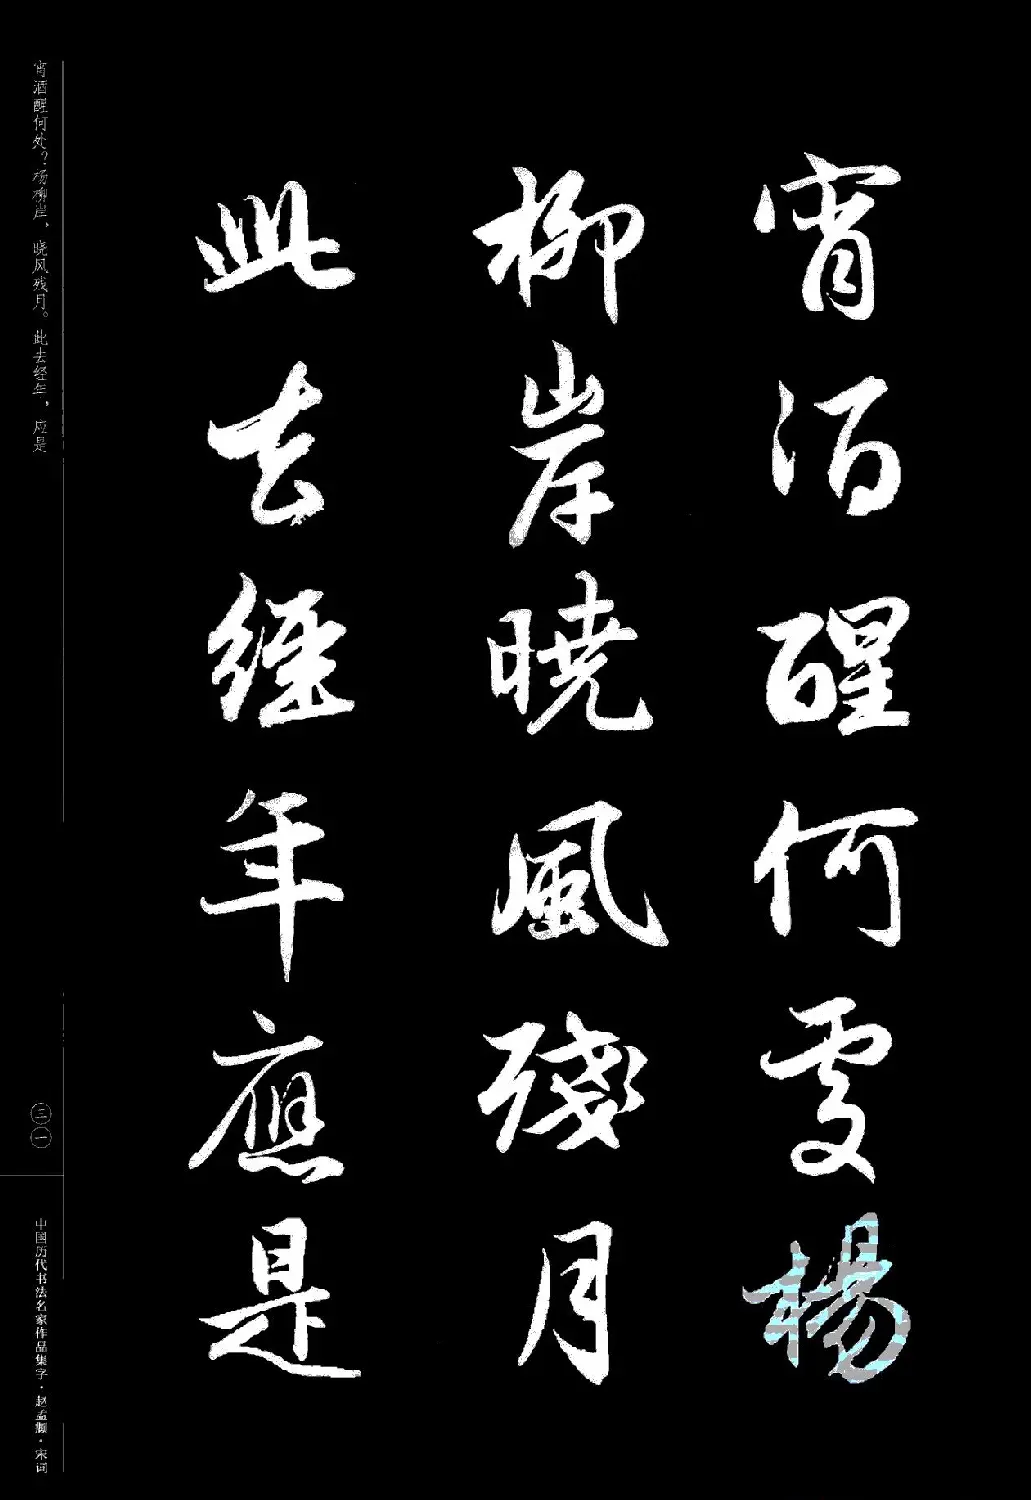 宵酒醒何處楊
柳岸曉風殘月
此去經年應是
宵酒醒何处？杨柳岸，晓风残月。此去经年，应是
三一
中国历代书法名家作品集字·赵孟頫·宋词